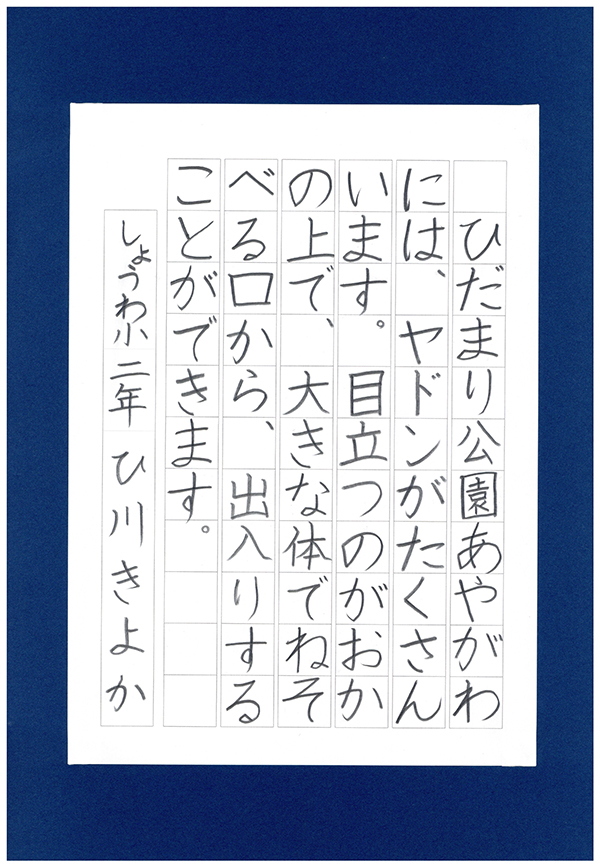 ひだまり公園あやがわ
には、ヤドンがたくさん
います。目立つのがおか
の上で、大きな体でねそ
べる口から、出入りする
ことができます。
しょうわ小二年　ひ川きよか